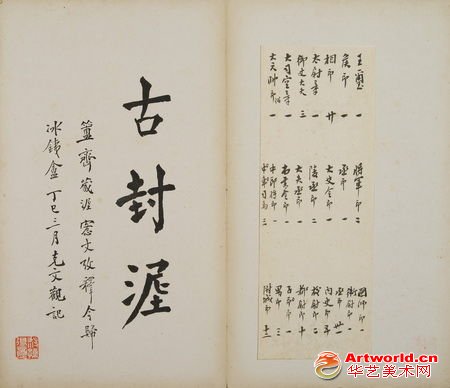 王璽 一
侯印 一
相印 廿
太尉章 一
御史大夫 三
大司空章 一
將軍印 二
丞印 一
大史令印 一
陵丞印 二
大夫丞印 一
尚書令印 一
中郎將印 一
中軍司馬 三
國師印 一
衛尉印 一
丞印 廿一
內史印 五
校尉印 二
都尉印 十
子印 一
男印 一
附城印 十三
古封埿
簠齊藏埿愙文攷釋今歸
冰鐵盦 丁巳三月克文觀記
Artworld.cn
华艺美术网